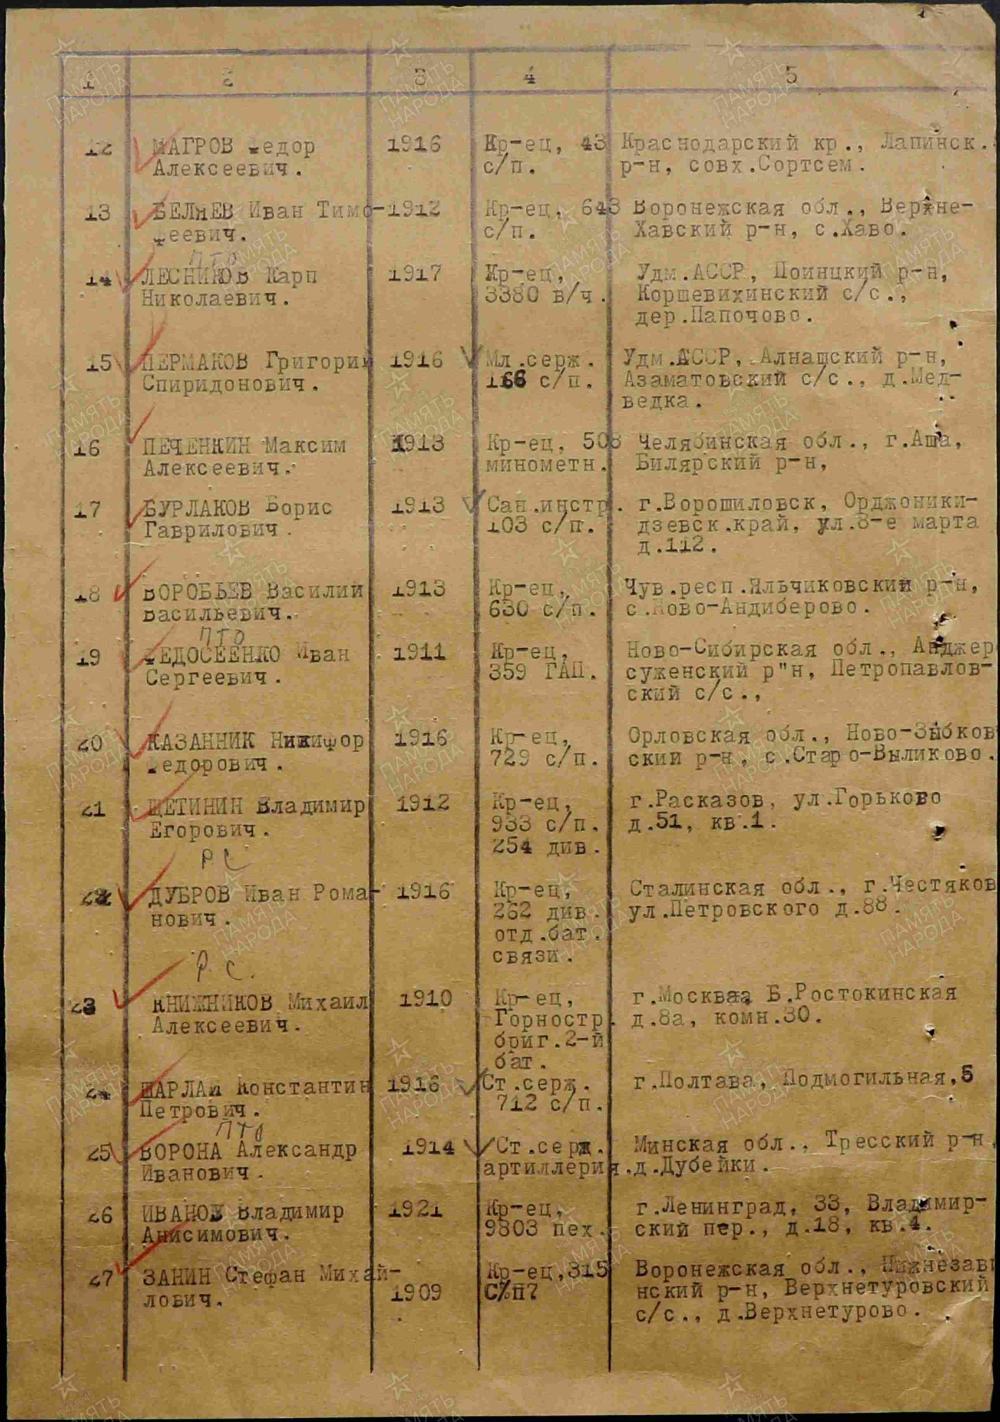 1 2 3 4 5
12 МАГРОВ Федор 1916 Кр-ец, 43 Краснодарский кр., Лапинск.
Алексеевич. с/п. р-н, совх.Сортсем.
13 БЕЛЯЕВ Иван Тимо- 1912 Кр-ец, 643 Воронежская обл., Верхне-
феевич. с/п. Хавский р-н, с.Хаво.
ПТО
14 ЛЕСНИКОВ Карп 1917 Кр-ец, Удм.АССР, Поинцкий р-н,
Николаевич. 3380 в/ч. Коршевихинский с/с.,
дер.Папочово.
15 ПЕРМАКОВ Григорий 1916 Мл.серж. Удм.АССР, Алнашский р-н,
Спиридонович. 166 с/п. Азаматовский с/с., д.Мед-
ведка.
16 ПЕЧЕНКИН Максим 1913 Кр-ец, 508 Челябинская обл., г.Аша,
Алексеевич. минометн. Билярский р-н,
17 БУРЛАКОВ Борис 1913 Сан.инстр. г.Ворошиловск, Орджоники-
Гаврилович. 103 с/п. дзевск.край, ул.8-е марта
д.112.
18 ВОРОБЬЕВ Василий 1913 Кр-ец, Чув.респ.Яльчиковский р-н,
Васильевич. 630 с/п. с.Ново-Андиберово.
ПТО
19 ФЕДОСЕЕНКО Иван 1911 Кр-ец, Ново-Сибирская обл., Анджер
Сергеевич. 359 ГАП. суженский р"н, Петропавлов-
ский с/с.,
20 КАЗАННИК Никифор 1916 Кр-ец, Орловская обл., Ново-Зыбков
Федорович. 729 с/п. ский р-н, с.Старо-Выликово.
21 ЩЕТИНИН Владимир 1912 Кр-ец, г.Расказов, ул.Горьково
Егорович. 933 с/п. д.51, кв.1.
254 див.
РС
22 ДУБРОВ Иван Рома- 1916 Кр-ец, Сталинская обл., г.Честяков
нович. 262 див. ул.Петровского д.88.
отд.бат.
связи.
Р.С.
23 КНИЖНИКОВ Михаил 1910 Кр-ец, г.Москваа Б.Ростокинская
Алексеевич. Горностр. д.8а, комн.30.
бриг.2-й
бат.
24 ШАРЛАЙ Константин 1916 Ст.серж. г.Полтава, Подмогильная,5
Петрович. 712 с/п.
ПТО
25 ВОРОНА Александр 1914 Ст.серж. Минская обл., Тресский р-н,
Иванович. артиллерия. д.Дубейки.
26 ИВАНОВ Владимир 1921 Кр-ец, г.Ленинград, 33, Владимир-
Анисимович. 9803 пех. ский пер., д.18, кв.4.
27 ЗАНИН Стефан Михай- Кр-ец,315 Воронежская обл., Нижнезави
лович. 1909 С/п? нский р-н, Верхнетуровский
с/с., д.Верхнетурово.